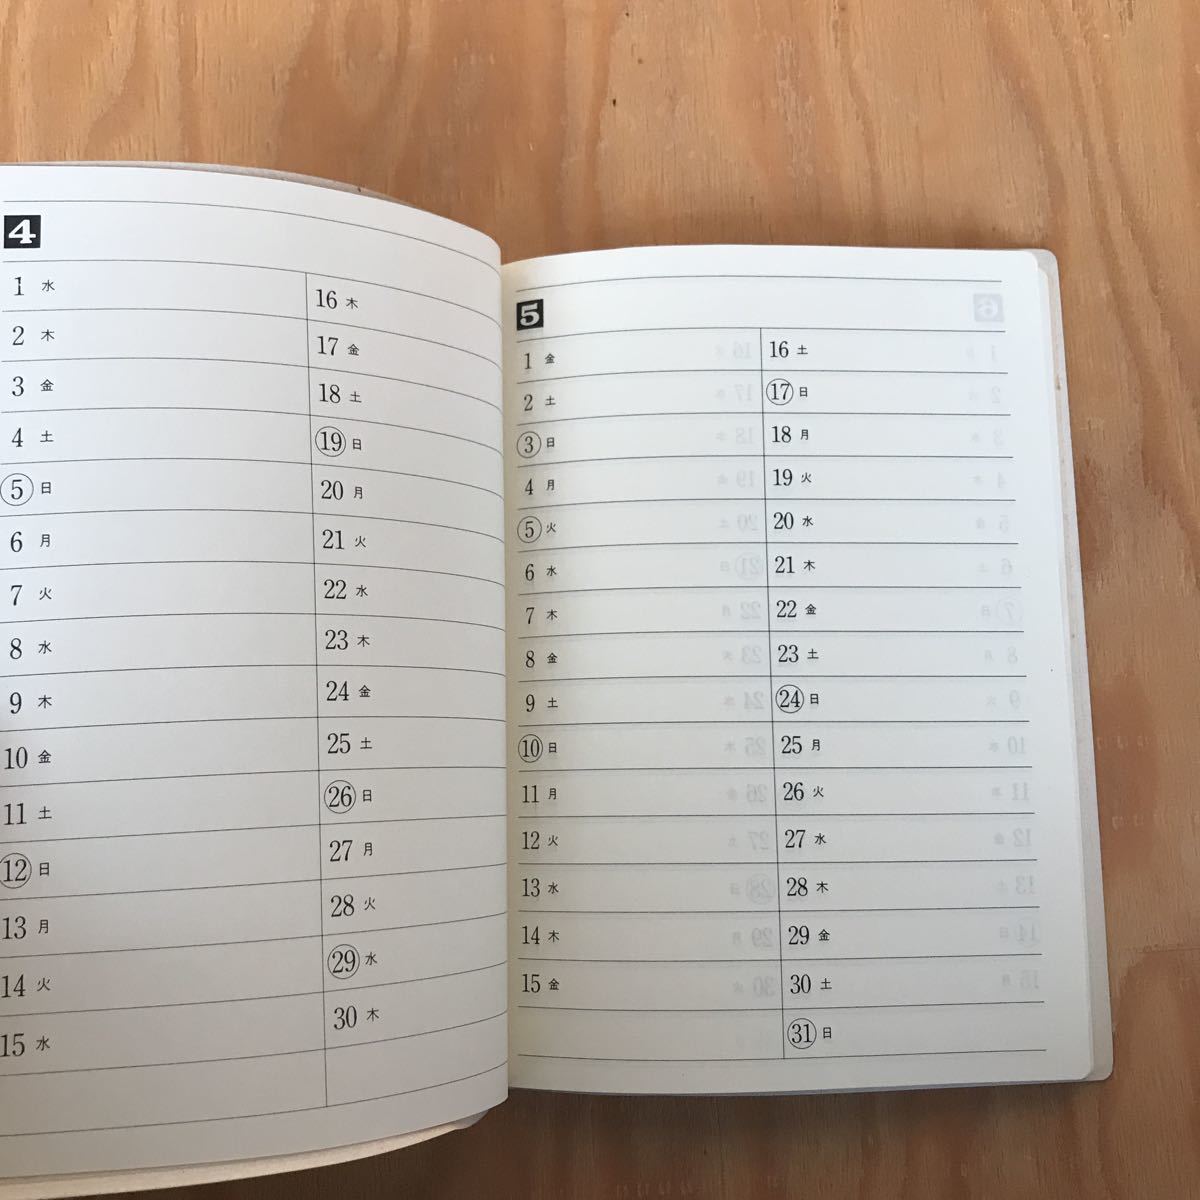 4
1 水
2 木
3 金
4 土
5 日
6 月
7 火
8 水
9 木
10 金
11 土
12 日
13 月
14 火
15 水
16 木
17 金
18 土
19 日
20 月
21 火
22 水
23 木
24 金
25 土
26 日
27 月
28 火
29 水
30 木
5
1 金
2 土
3 日
4 月
5 火
6 水
7 木
8 金
9 土
10 日
11 月
12 火
13 水
14 木
15 金
16 土
17 日
18 月
19 火
20 水
21 木
22 金
23 土
24 日
25 月
26 火
27 水
28 木
29 金
30 土
31 日